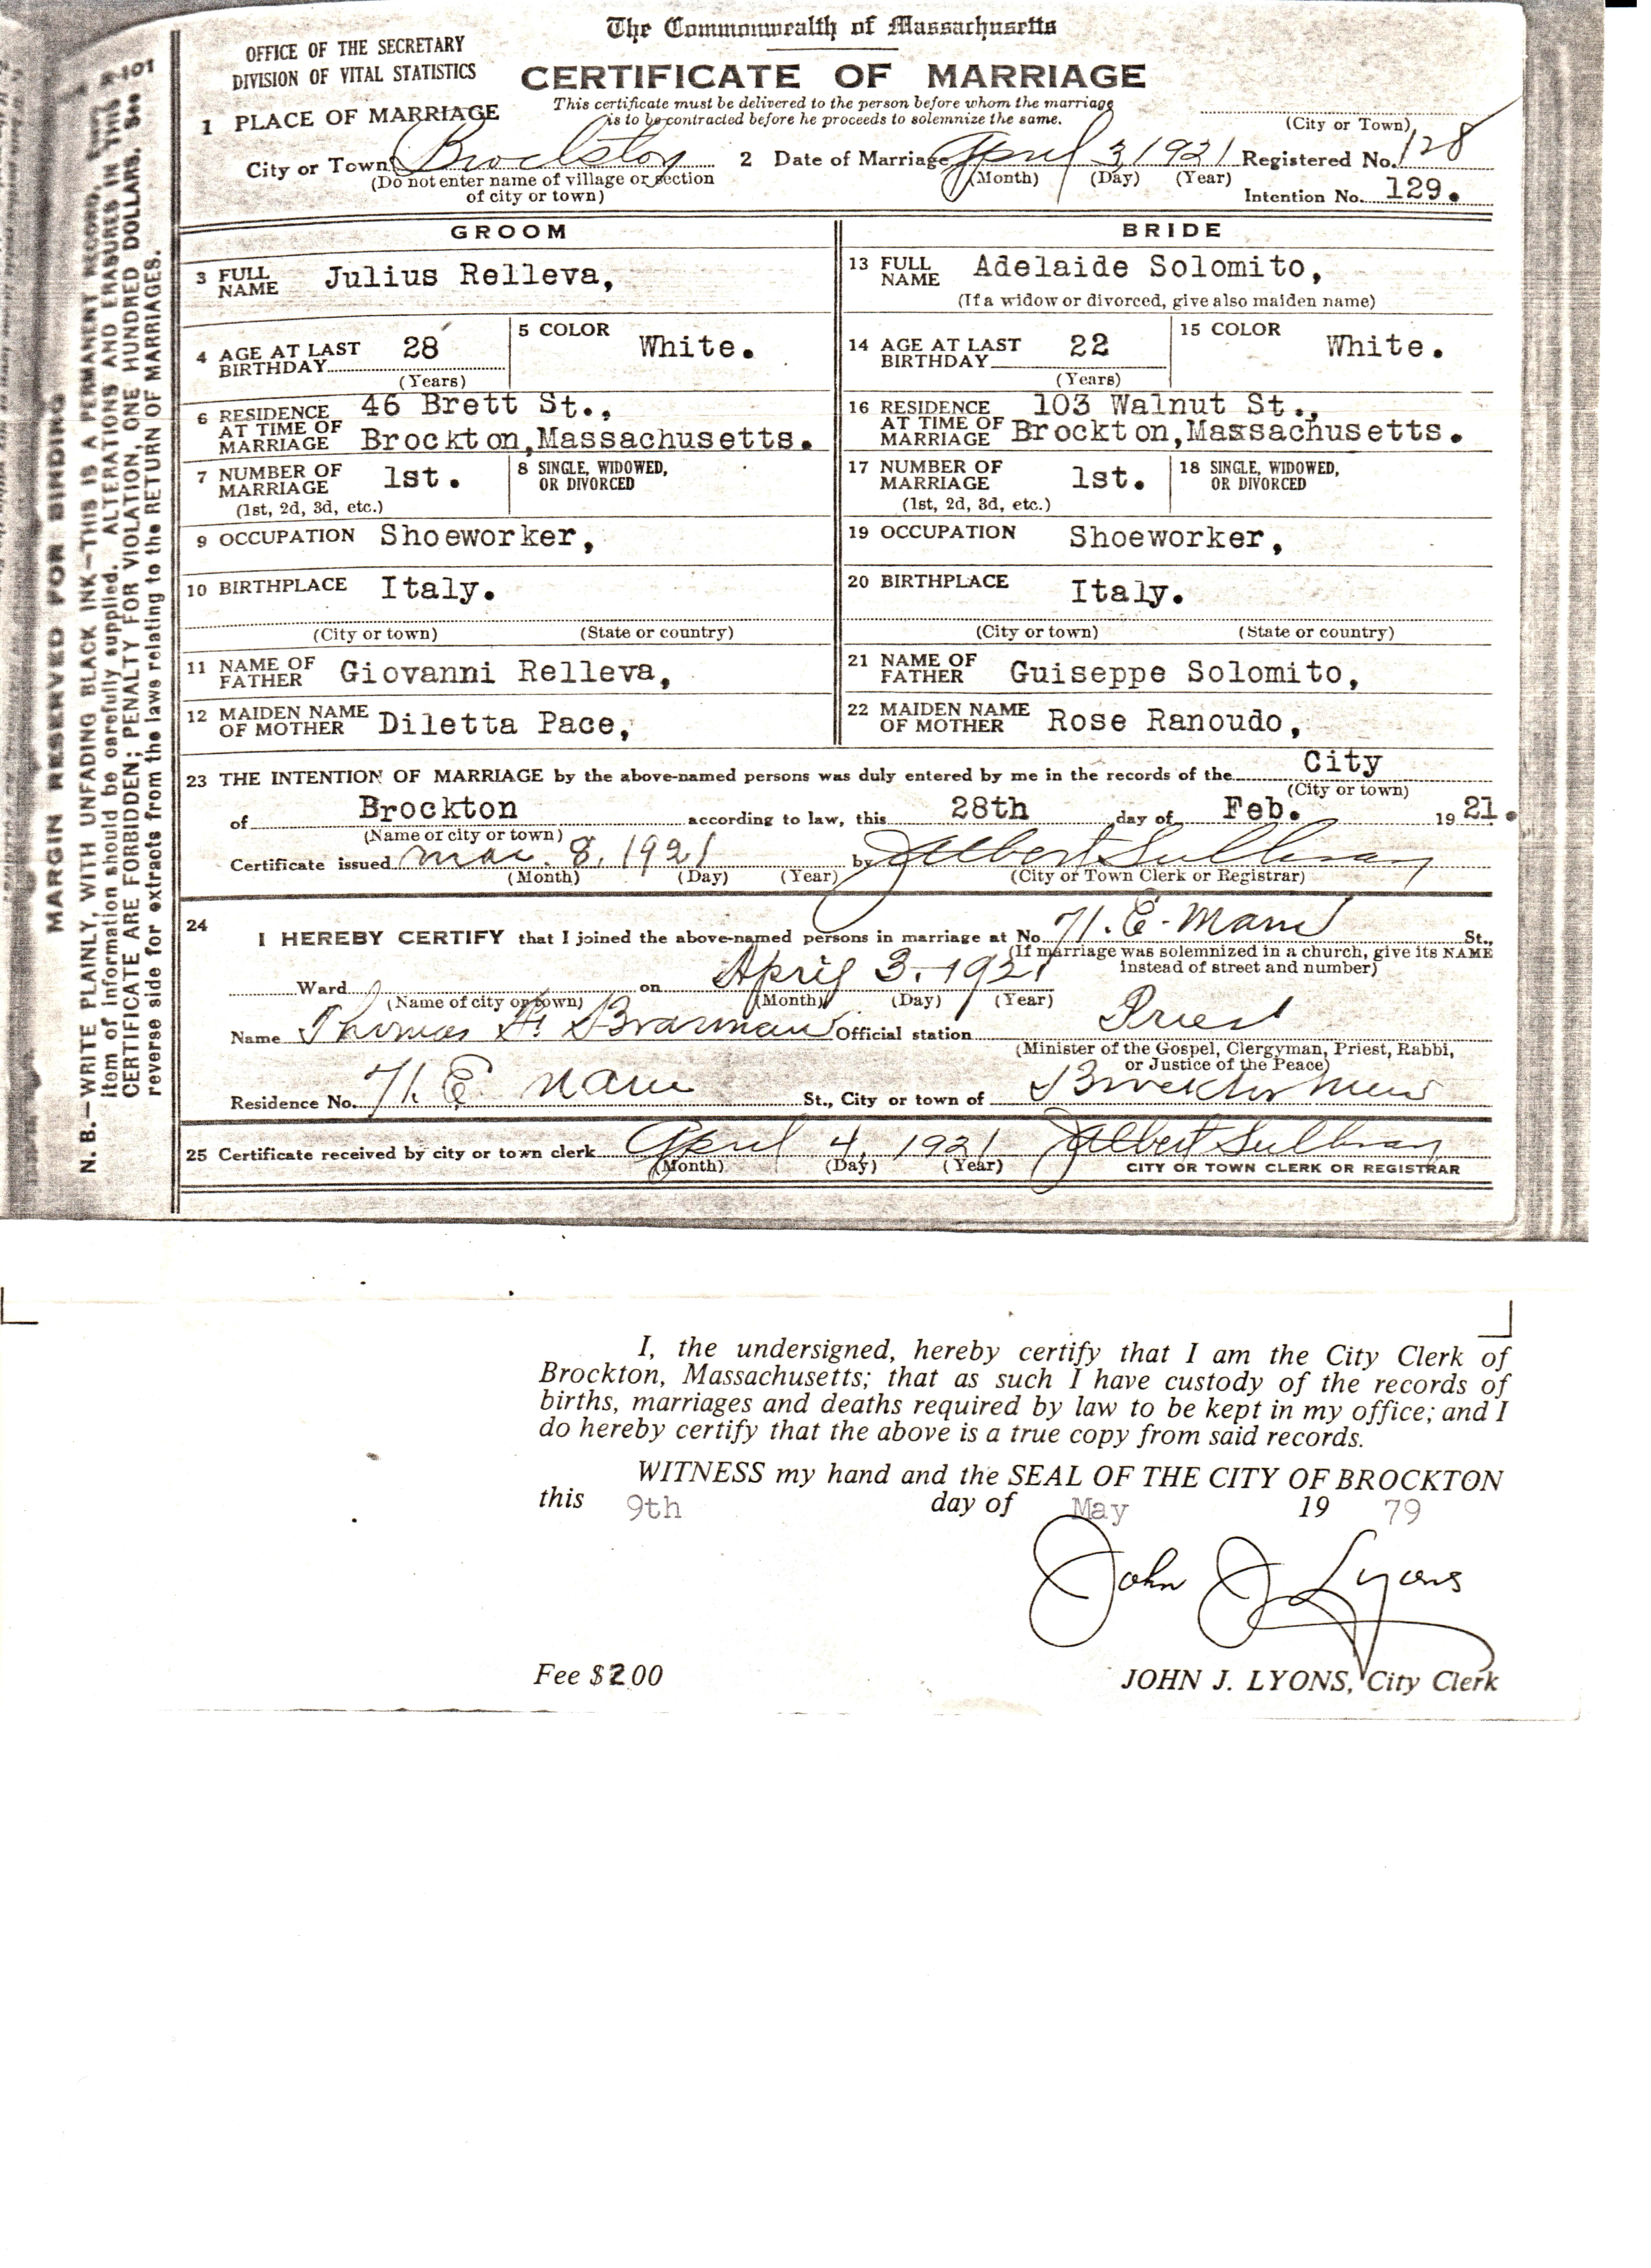 The Commonwealth of Massachusetts
OFFICE OF THE SECRETARY
DIVISION OF VITAL STATISTICS
CERTIFICATE OF MARRIAGE
This certificate must be delivered to the person before whom the marriage
is to be contracted before he proceeds to solemnize the same.
1 PLACE OF MARRIAGE
(City or Town)
City or Town Brockton 2 Date of Marriage April 3 1921 Registered No. 128
(Do not enter name of village or section
of city or town)
(Month) (Day) (Year)
Intention No. 129.
GROOM
3 FULL NAME Julius Relleva,
4 AGE AT LAST BIRTHDAY 28
(Years)
5 COLOR White.
6 RESIDENCE AT TIME OF MARRIAGE 46 Brett St.,
Brockton, Massachusetts.
7 NUMBER OF MARRIAGE 1st.
(1st, 2d, 3d, etc.)
8 SINGLE, WIDOWED, OR DIVORCED
9 OCCUPATION Shoeworker,
10 BIRTHPLACE Italy.
(City or town) (State or country)
11 NAME OF FATHER Giovanni Relleva,
12 MAIDEN NAME OF MOTHER Diletta Pace,
BRIDE
13 FULL NAME Adelaide Solomito,
(If a widow or divorced, give also maiden name)
14 AGE AT LAST BIRTHDAY 22
(Years)
15 COLOR White.
16 RESIDENCE AT TIME OF MARRIAGE 103 Walnut St.,
Brockton, Massachusetts.
17 NUMBER OF MARRIAGE 1st.
(1st, 2d, 3d, etc.)
18 SINGLE, WIDOWED, OR DIVORCED
19 OCCUPATION Shoeworker,
20 BIRTHPLACE Italy.
(City or town) (State or country)
21 NAME OF FATHER Guiseppe Solomito,
22 MAIDEN NAME OF MOTHER Rose Ranoudo,
23 THE INTENTION OF MARRIAGE by the above-named persons was duly entered by me in the records of the City
(City or town)
of Brockton according to law, this 28th day of Feb. 1921.
(Name of city or town)
Certificate issued Mar. 8, 1921 by J. Albert Sullivan
(Month) (Day) (Year) (City or Town Clerk or Registrar)
24
I HEREBY CERTIFY that I joined the above-named persons in marriage at No. 71. E. Main St.,
(If marriage was solemnized in a church, give its NAME
instead of street and number)
Ward on April 3. 1921
(Name of city or town) (Month) (Day) (Year)
Name Thomas Official station Priest
(Minister of the Gospel, Clergyman, Priest, Rabbi,
or Justice of the Peace)
Residence No. 71. E Main St., City or town of Brockton Mass
25 Certificate received by city or town clerk April 4, 1921 J. Albert Sullivan
(Month) (Day) (Year) CITY OR TOWN CLERK OR REGISTRAR
MARGIN RESERVED FOR BINDING
N. B.—WRITE PLAINLY, WITH UNFADING BLACK INK—THIS IS A PERMANENT RECORD.
item of information should be carefully supplied. ALTERATIONS AND ERASURES IN THIS
CERTIFICATE ARE FORBIDDEN; PENALTY FOR VIOLATION, ONE HUNDRED DOLLARS. See
reverse side for extracts from the laws relating to the RETURN OF MARRIAGES.
I, the undersigned, hereby certify that I am the City Clerk of
Brockton, Massachusetts; that as such I have custody of the records of
births, marriages and deaths required by law to be kept in my office; and I
do hereby certify that the above is a true copy from said records.
WITNESS my hand and the SEAL OF THE CITY OF BROCKTON
this 9th day of May 19 79
John J. Lyons
Fee $2.00 JOHN J. LYONS, City Clerk